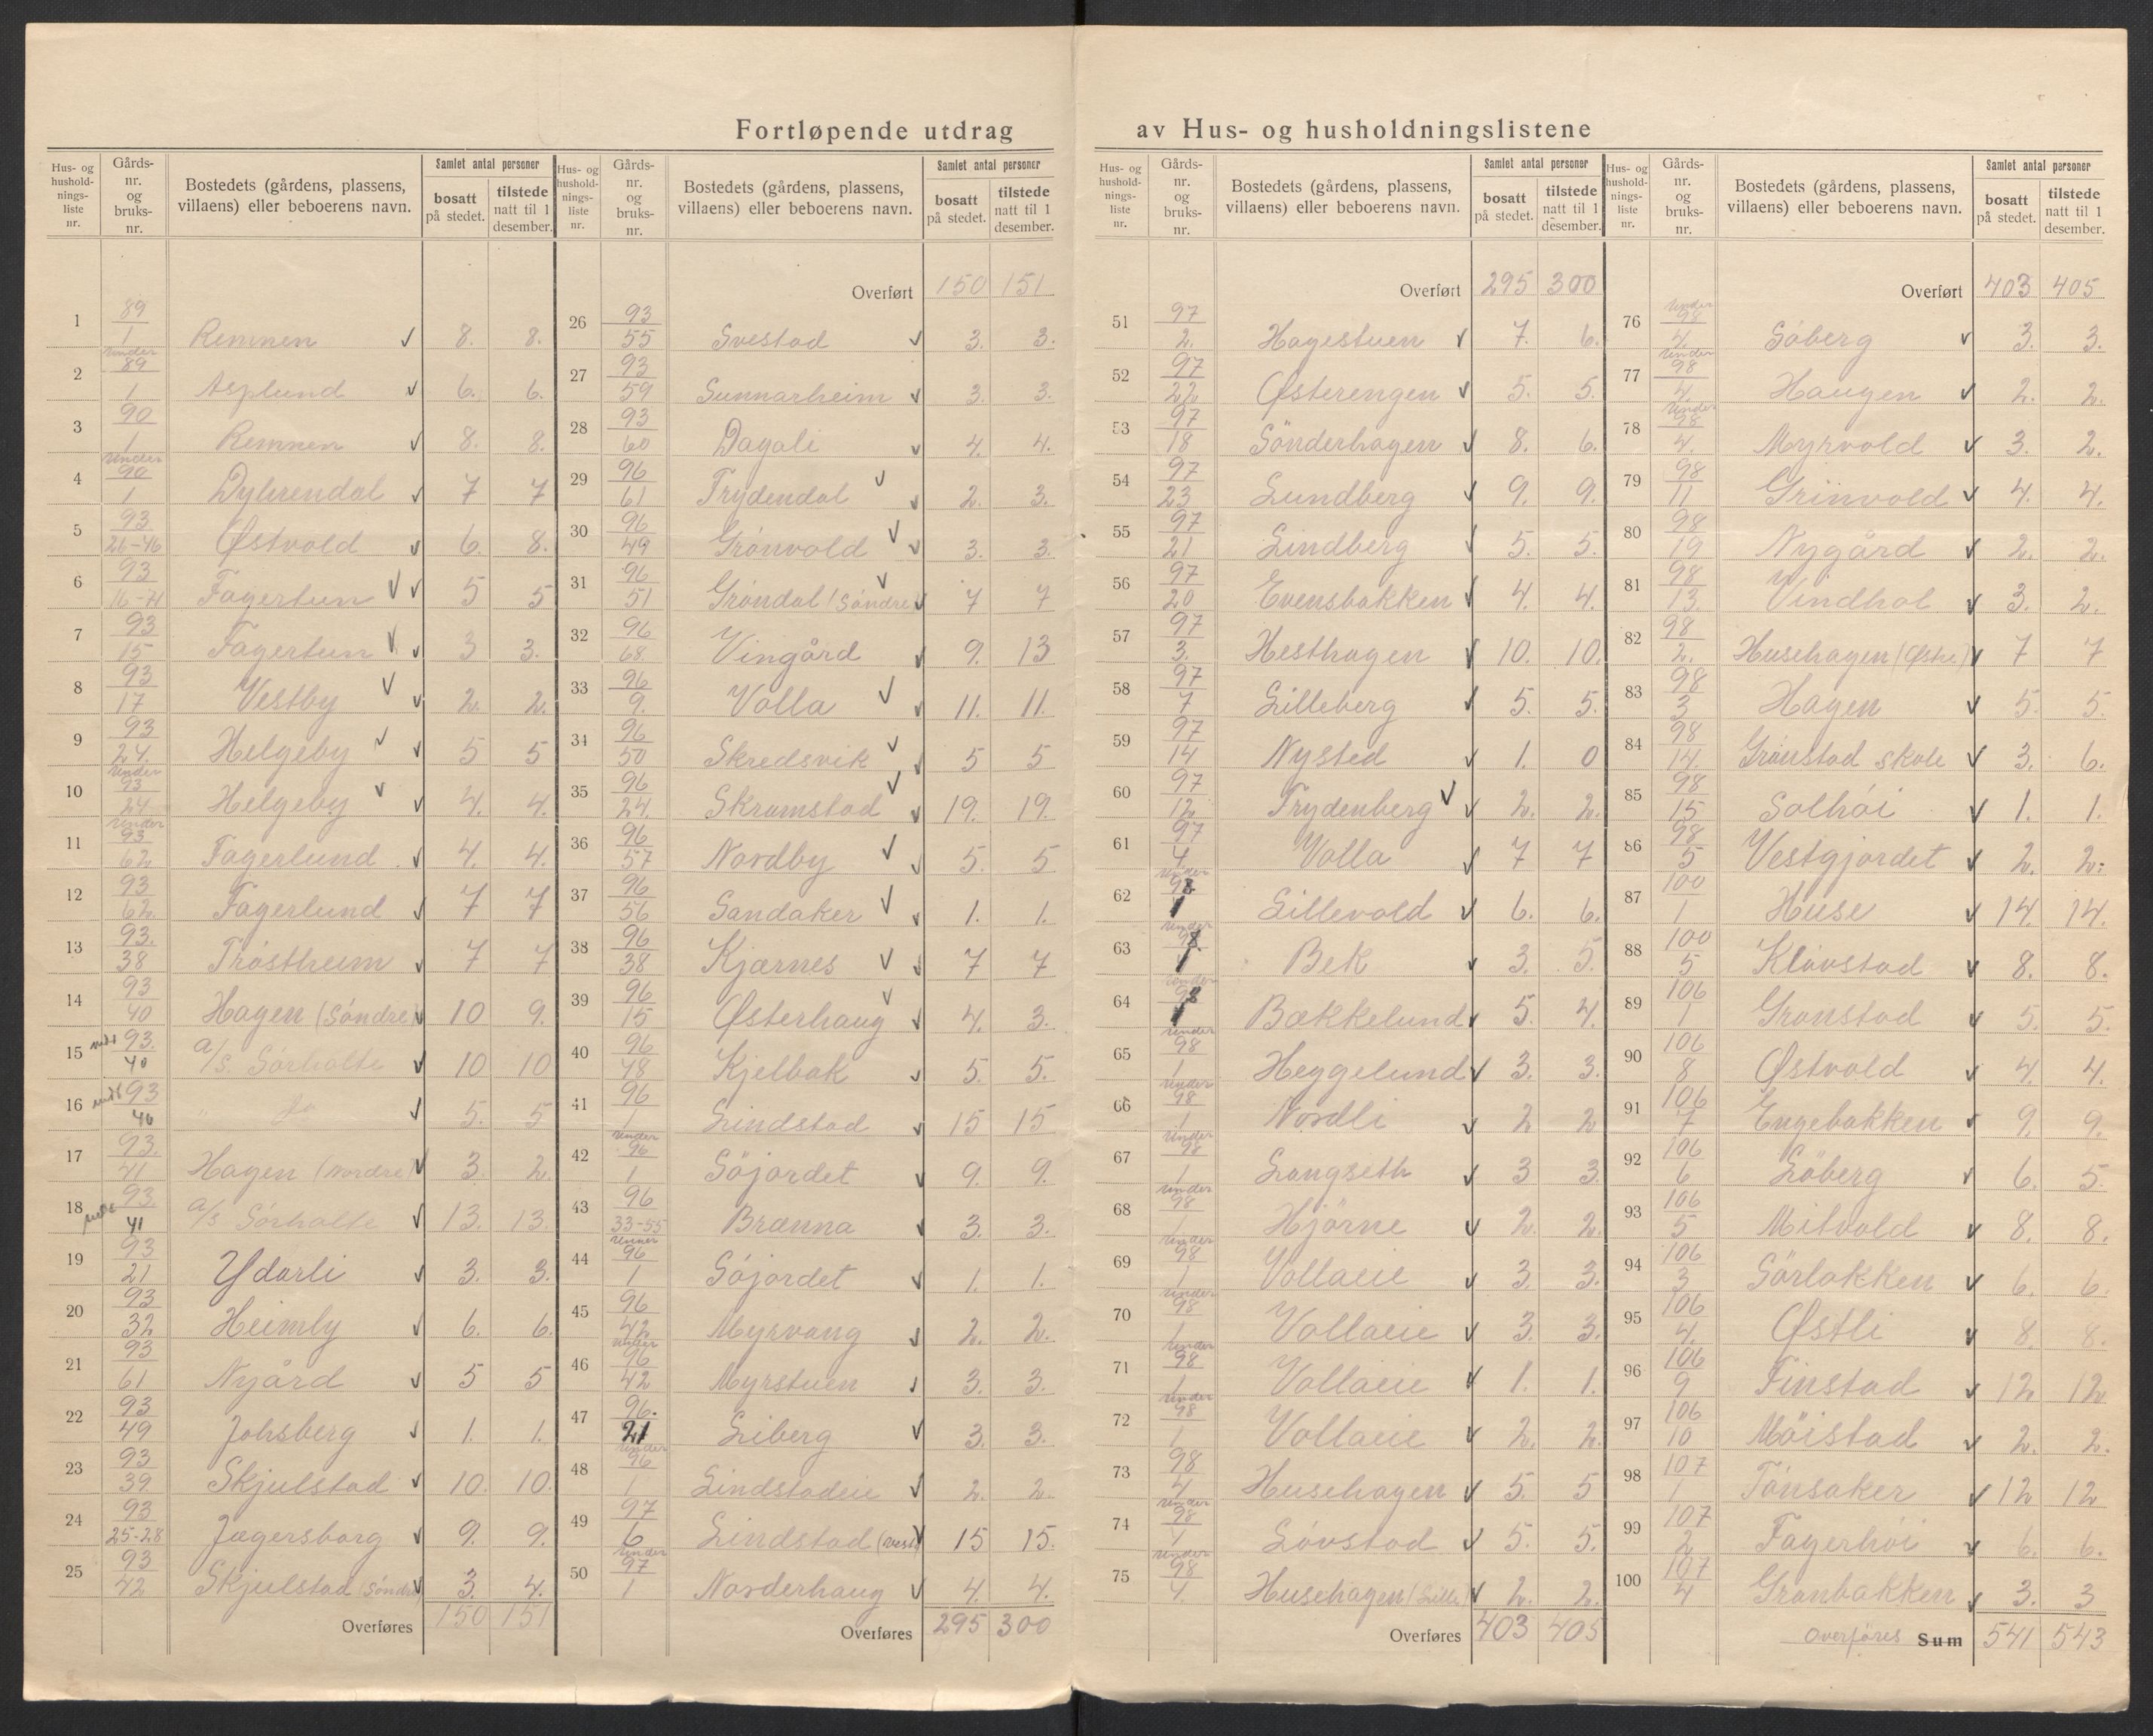 Fortløpende utdrag av Hus- og husholdningslistene
Hus- og husholdningsliste nr. | Gårdsnr. og bruksnr. | Bostedets (gårdens, plassens, villaens) eller beboerens navn. | Samlet antal personer: bosatt på stedet. | tilstede natt til 1 desember.
1 | 89/1 | Remmen ✓ | 8. | 8.
2 | under 89/1 | Asplund ✓ | 6. | 6.
3 | 90/1 | Remmen ✓ | 8. | 8.
4 | under 90/1 | Dyhrendal ✓ | 7 | 7
5 | 93/26-46 | Østvold ✓ | 6. | 8.
6 | 93/16-71 | Fagertun ✓ ✓ | 5 | 5
7 | 93/15 | Fagertun ✓ ✓ | 3 | 3.
8 | 93/17 | Vestby ✓ ✓ | 2. | 2.
9 | 93/24. | Helgeby ✓ ✓ | 5 | 5
10 | under 93/24 | Helgeby ✓ ✓ | 4. | 4.
11 | under 93/62 | Fagerlund ✓ | 4. | 4.
12 | 93/62. | Fagerlund ✓ | 7 | 7
13 | 93./38 | Tróstheim ✓ | 7 | 7
14 | 93/40 | Hagen (Søndre) ✓ | 10 | 9.
15 | 93./40 | a/s. Sórholte ✓ | 10 | 10
16 | 93/40 | " do ✓ | 5. | 5
17 | 93./41 | Hagen (nordre) ✓ | 3. | 2.
18 | 93./41 | a/s Sórholte ✓ | 13. | 13.
19 | 93/21 | Ydarli ✓ | 3. | 3.
20 | 93/32 | Heimly ✓ | 6. | 6.
21 | 93/61 | Nyård ✓ | 5 | 5
22 | 93/49 | Johsberg ✓ | 1. | 1.
23 | 93/39. | Skjulstad ✓ | 10. | 10.
24 | 93/25-28 | Jægersborg ✓ | 9. | 9.
25 | 93/42 | Skjulstad (Søndre) ✓ | 3. | 4.
Overføres | 150 | 151
Hus- og husholdningsliste nr. | Gårdsnr. og bruksnr. | Bostedets (gårdens, plassens, villaens) eller beboerens navn. | Samlet antal personer: bosatt på stedet. | tilstede natt til 1 desember.
Overført | 150 | 151
26 | 93/55 | Svestad ✓ | 3. | 3.
27 | 93/59 | Sunnarheim ✓ | 3. | 3.
28 | 93/60 | Dagali ✓ | 4. | 4.
29 | 96/61 | Trydendal ✓ ✓ | 2. | 3.
30 | 96/49 | Grónvold ✓ ✓ | 3. | 3.
31 | 96/51 | Gróndal (Søndre) ✓ ✓ | 7 | 7
32 | 96/68. | Vingård ✓ | 9. | 13
33 | 96/9. | Volla ✓ ✓ | 11. | 11.
34 | 96/50 | Skredsvik ✓ ✓ | 5 | 5
35 | 96/24. | Skramstad ✓ ✓ | 19. | 19.
36 | 96/57 | Nordby ✓ ✓ | 5. | 5
37 | 96/56 | Sandaker ✓ ✓ | 1. | 1.
38 | 96/38 | Kjærnes ✓ ✓ | 7 | 7
39 | 96/15 | Østerhaug ✓ ✓ | 4. | 3.
40 | 96/48 | Kjelbak ✓ | 5. | 5.
41 | 96/1 | Lindstad ✓ | 15 | 15
42 | under 96/1 | Søjordet ✓ | 9. | 9.
43 | 96/33-55 | Brænna ✓ | 3. | 3.
44 | under 96/1 | Søjordet ✓ | 1. | 1.
45 | 96/42 | Myrvang ✓ | 2. | 2.
46 | under 96/42 | Myrstuen ✓ | 3. | 3.
47 | 96./21 | Liberg ✓ | 3. | 3.
48 | under 96/1 | Lindstadeie ✓ | 2. | 2.
49 | 97/6 | Lindstad (vest) ✓ | 15 | 15.
50 | under 97/1 | Norderhaug ✓ | 4. | 4.
Overføres | 295 | 300
Hus- og husholdningsliste nr. | Gårdsnr. og bruksnr. | Bostedets (gårdens, plassens, villaens) eller beboerens navn. | Samlet antal personer: bosatt på stedet. | tilstede natt til 1 desember.
Overført | 295 | 300
51 | 97/2. | Hagestuen ✓ | 7. | 6.
52 | 97/22 | Østerengen ✓ | 5. | 5.
53 | 97/18 | Sönderhagen ✓ | 8. | 6.
54 | 97/23 | Lundberg ✓ | 9. | 9.
55 | 97/21 | Lindberg ✓ | 5. | 5.
56 | 97/20 | Evensbakken ✓ | 4. | 4.
57 | 97/3. | Hesthagen ✓ | 10. | 10.
58 | 97/7 | Lilleberg ✓ | 5. | 5.
59 | 97/14 | Nysted ✓ | 1. | 0
60 | 97/12 | Trydenberg ✓ ✓ | 2. | 2.
61 | 97/4. | Volla ✓ | 7 | 7
62 | under 98/1 | Lillevold ✓ | 6. | 6.
63 | under 98/1 | Bek ✓ | 3. | 5.
64 | under 98/1 | Bækkelund ✓ | 5. | 4.
65 | under 98/1 | Heggelund ✓ | 3. | 3.
66 | under 98/1 | Nordli ✓ | 2 | 2
67 | under 98/1 | Langseth ✓ | 3 | 3.
68 | under 98/1 | Hjörne ✓ | 2. | 2.
69 | under 98/1 | Vollaeie ✓ | 3. | 3.
70 | under 98/1 | Vollaeie ✓ | 3. | 3.
71 | under 98/1 | Vollaeie ✓ | 1. | 1.
72 | under 98/1 | Vollaeie ✓ | 2. | 2.
73 | 98/4 | Husehagen ✓ | 5. | 5
74 | under 98/4 | Lóvstad ✓ | 5. | 5.
75 | under 98/4. | Husehagen (Lille) ✓ | 2. | 2.
Overføres | 403 | 405
Hus- og husholdningsliste nr. | Gårdsnr. og bruksnr. | Bostedets (gårdens, plassens, villaens) eller beboerens navn. | Samlet antal personer: bosatt på stedet. | tilstede natt til 1 desember.
Overført | 403 | 405
76 | under 98/4. | Sóberg ✓ | 3. | 3.
77 | under 98/4. | Haugen ✓ | 2. | 2.
78 | under 98/4. | Myrvold ✓ | 3. | 2.
79 | 98/11 | Grinvold ✓ | 4. | 4.
80 | 98/19 | Nygård ✓ | 2. | 2.
81 | 98/13. | Vindhol ✓ | 3. | 2.
82 | 98/2. | Husehagen (Østre) ✓ | 7 | 7
83 | 98/3 | Hagen ✓ | 5. | 5.
84 | 98/14. | Grónstad skole ✓ | 3. | 6.
85 | 98/15 | Solhói ✓ | 1. | 1.
86 | 98/5 | Vestgjordet ✓ | 2. | 2.
87 | 100/1 | Huse ✓ | 14. | 14.
88 | 100/5 | Klóvstad ✓ | 8. | 8.
89 | 106/1 | Grønstad ✓ | 5. | 5.
90 | 106/8 | Østvold ✓ | 4. | 4.
91 | 106/7 | Engebakken ✓ | 9. | 9.
92 | 106/6 | Löberg ✓ | 6. | 5.
93 | 106/5 | Mitvold ✓ | 8. | 8.
94 | 106/3 | Sörløkken ✓ | 6. | 6.
95 | 106/4. | Østli ✓ | 8. | 8.
96 | 106/9 | Finstad ✓ | 12 | 12
97 | 106/10 | Möistad ✓ | 2. | 2.
98 | 107/1 | Tónsaker ✓ | 12 | 12
99 | 107/2 | Fagerhói ✓ | 6. | 6.
100 | 107/4 | Grønbakken ✓ | 3. | 3
overføres Sum | 541 | 543